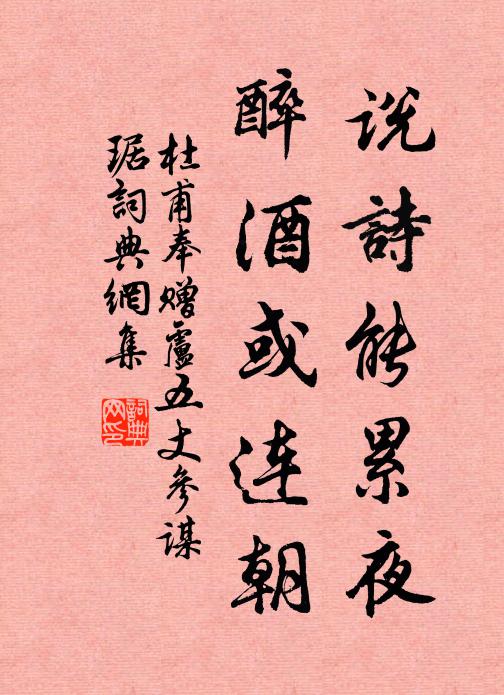 说詩能累夜
醉酒或连朝
杜甫奉赠盧五丈參谋
琚詞典網集
詞典
网印